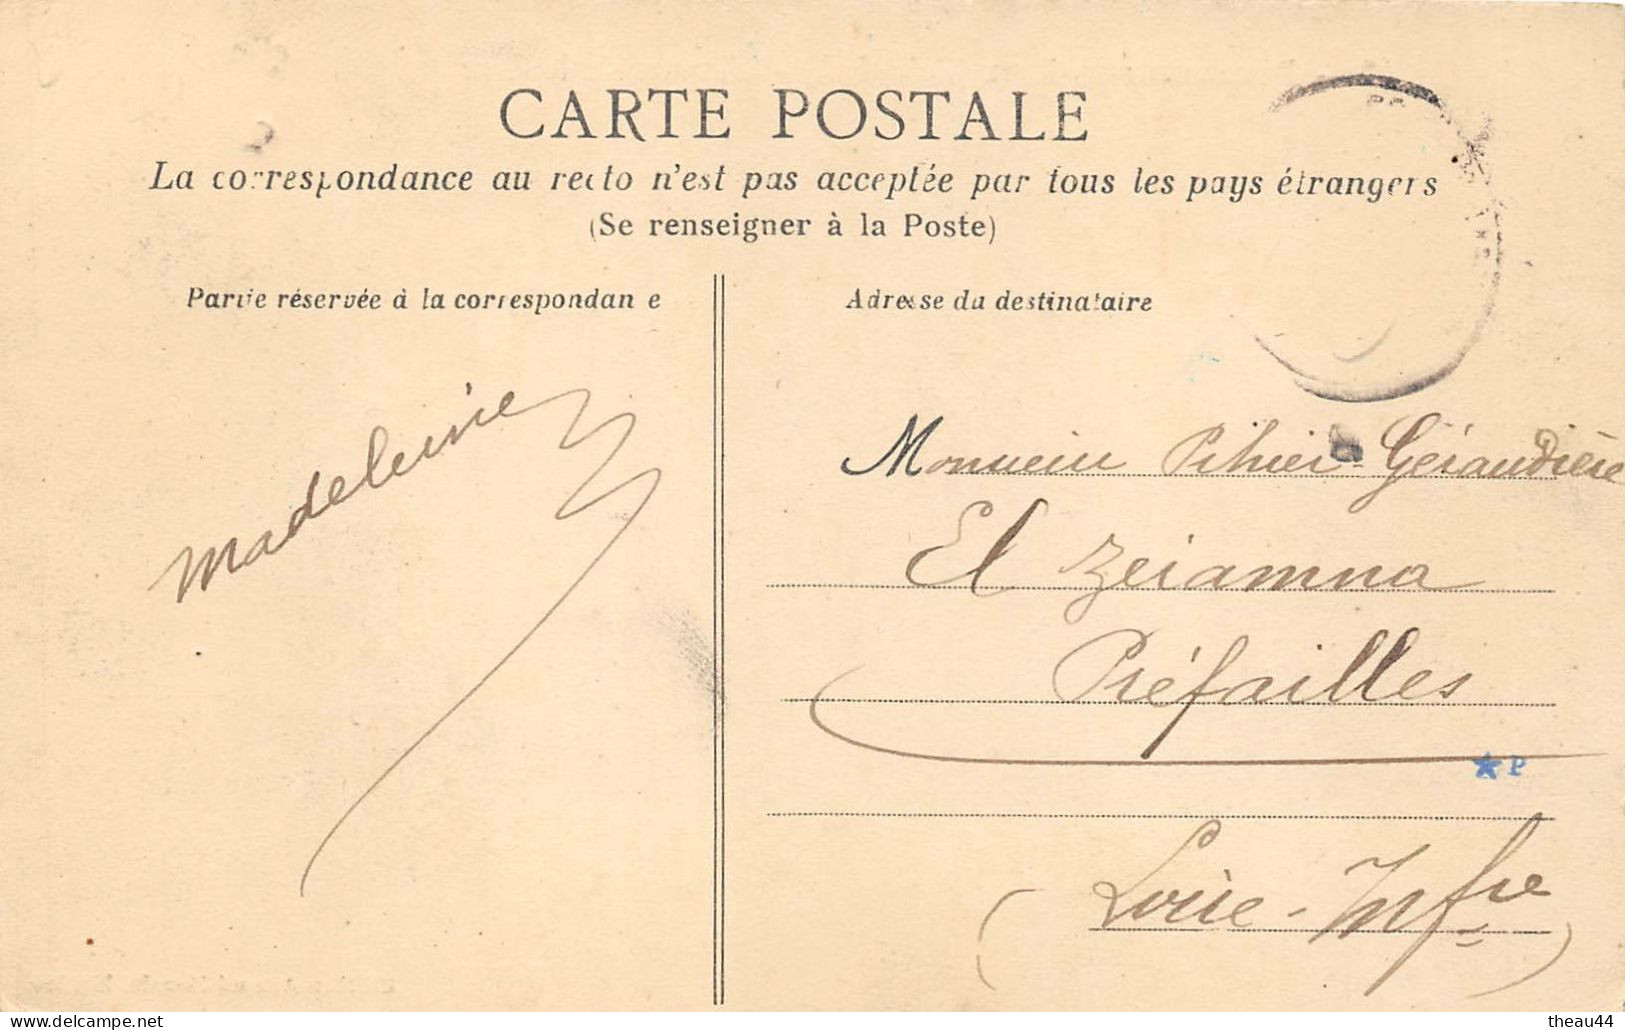 CARTE POSTALE
La correspondance au recto n'est pas acceptée par tous les pays étrangers
(Se renseigner à la Poste)
Partie réservée à la correspondan e
Adresse du destinataire
Madeleine
Monsieur Pihier-Géraudière
El Zeiamna
Préfailles
★P
(Loire-Infre)
delcampe.net
theau44